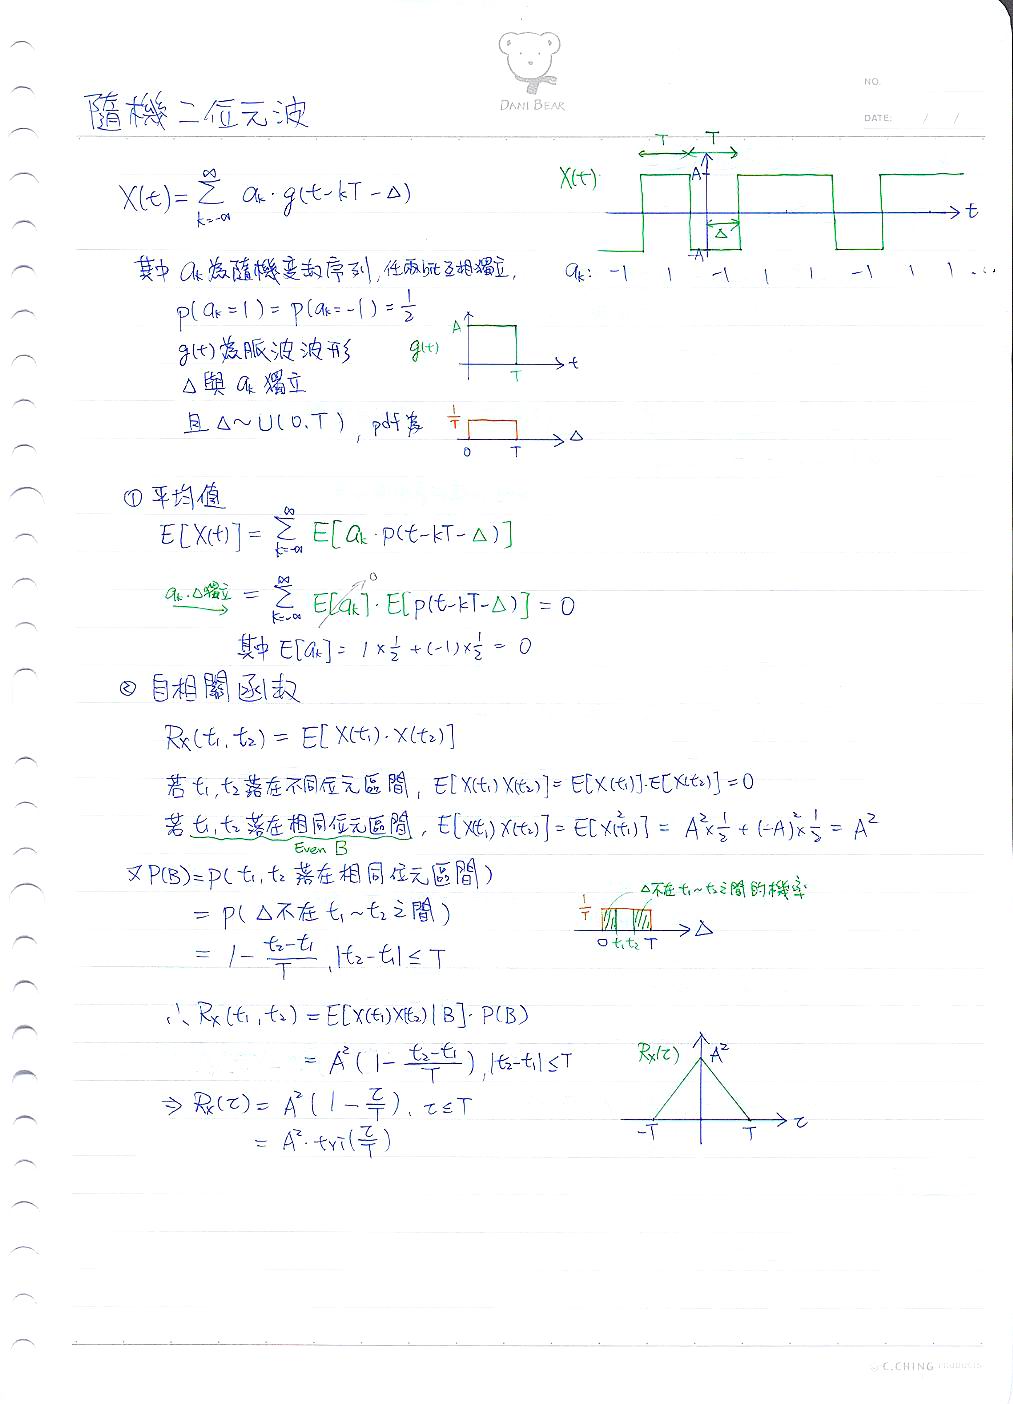 DANI BEAR
NO.
DATE: / /
隨機二位元波
X(t) = Σ_{k=-∞}^{∞} a_k · g(t-kT-Δ)
X(t)
T T
A
-A
Δ
t
a_k: -1 1 -1 1 1 -1 1 1 ...
其中 a_k 為隨機變數序列, 任兩項互相獨立,
p(a_k=1) = p(a_k=-1) = 1/2
g(t) 為脈波波形
g(t) A T t
Δ 與 a_k 獨立
且 Δ~U(0,T), pdf 為
1/T 0 T Δ
① 平均值
E[X(t)] = Σ_{k=-∞}^{∞} E[a_k · p(t-kT-Δ)]
a_k、Δ獨立 = Σ_{k=-∞}^{∞} E[a_k]·E[p(t-kT-Δ)] = 0
0
其中 E[a_k] = 1×1/2 + (-1)×1/2 = 0
② 自相關函數
R_X(t₁,t₂) = E[X(t₁)·X(t₂)]
若 t₁,t₂ 落在不同位元區間, E[X(t₁)X(t₂)] = E[X(t₁)]·E[X(t₂)] = 0
若 t₁,t₂ 落在相同位元區間, E[X(t₁)X(t₂)] = E[X²(t₁)] = A²×1/2 + (-A)²×1/2 = A²
Even B
又 P(B) = p(t₁,t₂ 落在相同位元區間)
= p(Δ不在 t₁~t₂ 之間)
= 1 - (t₂-t₁)/T, |t₂-t₁| ≤ T
Δ不在t₁~t₂之間的機率
1/T 0 t₁ t₂ T Δ
∴ R_X(t₁,t₂) = E[X(t₁)X(t₂)|B]·P(B)
= A²(1 - (t₂-t₁)/T), |t₂-t₁| ≤ T
⇒ R_X(τ) = A²(1 - τ/T), τ ≤ T
= A²·tri(τ/T)
R_X(τ) A²
-T T τ
C.CHING PRODUCTS